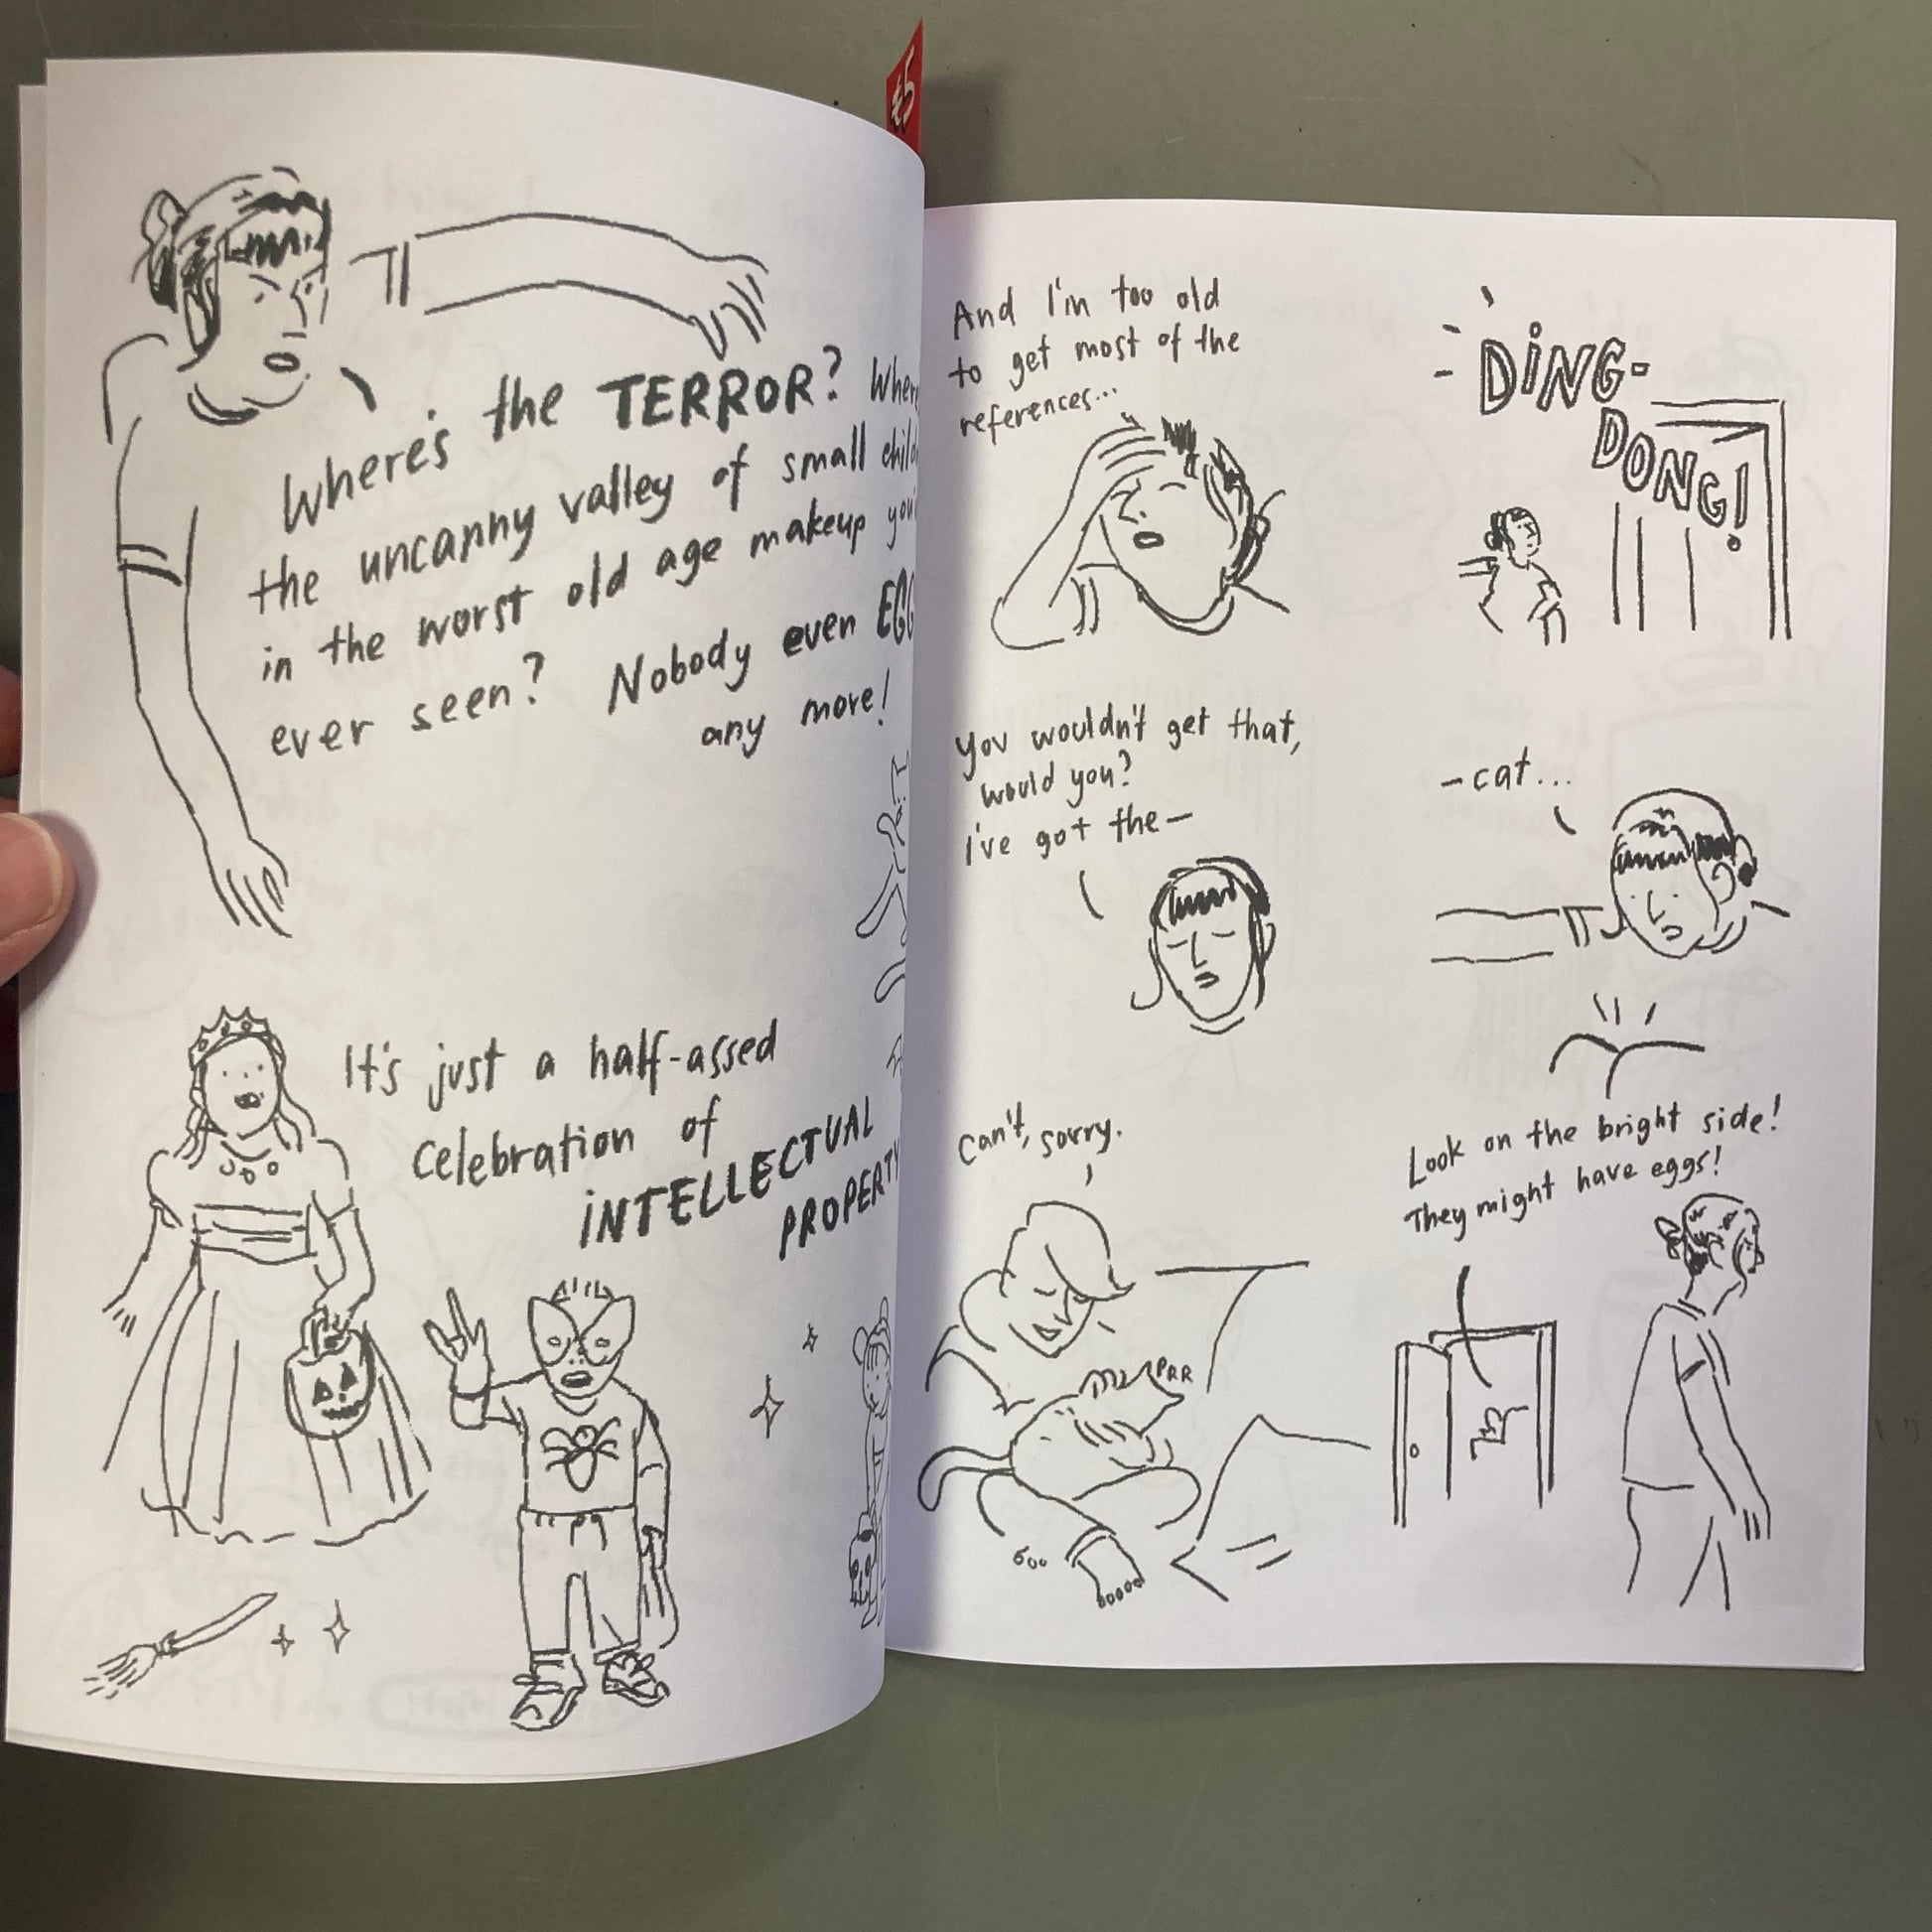 £5
Where's the TERROR?
the uncanny valley of small
in the worst old age makeup
ever seen? Nobody even
any more!
It's just a half-assed
celebration of
INTELLECTUAL
PROPERTY
And I'm too old
to get most of the
references...
DING-
DONG!
You wouldn't get that,
would you?
I've got the—
-cat...
Can't, sorry.
PRR
Look on the bright side!
They might have eggs!